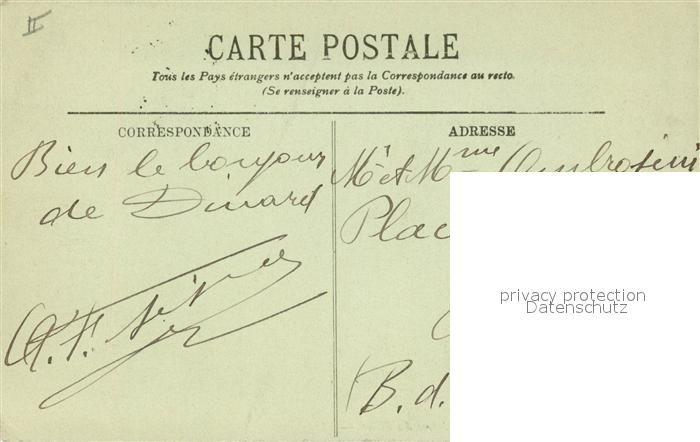 II
CARTE POSTALE
Tous les Pays étrangers n'acceptent pas la Correspondance au recto.
(Se renseigner à la Poste).
CORRESPONDANCE
Bien le bonjour
de Dinard
ADRESSE
Mr et Mme Ambrosini
Plac
B. d.
privacy protection
Datenschutz